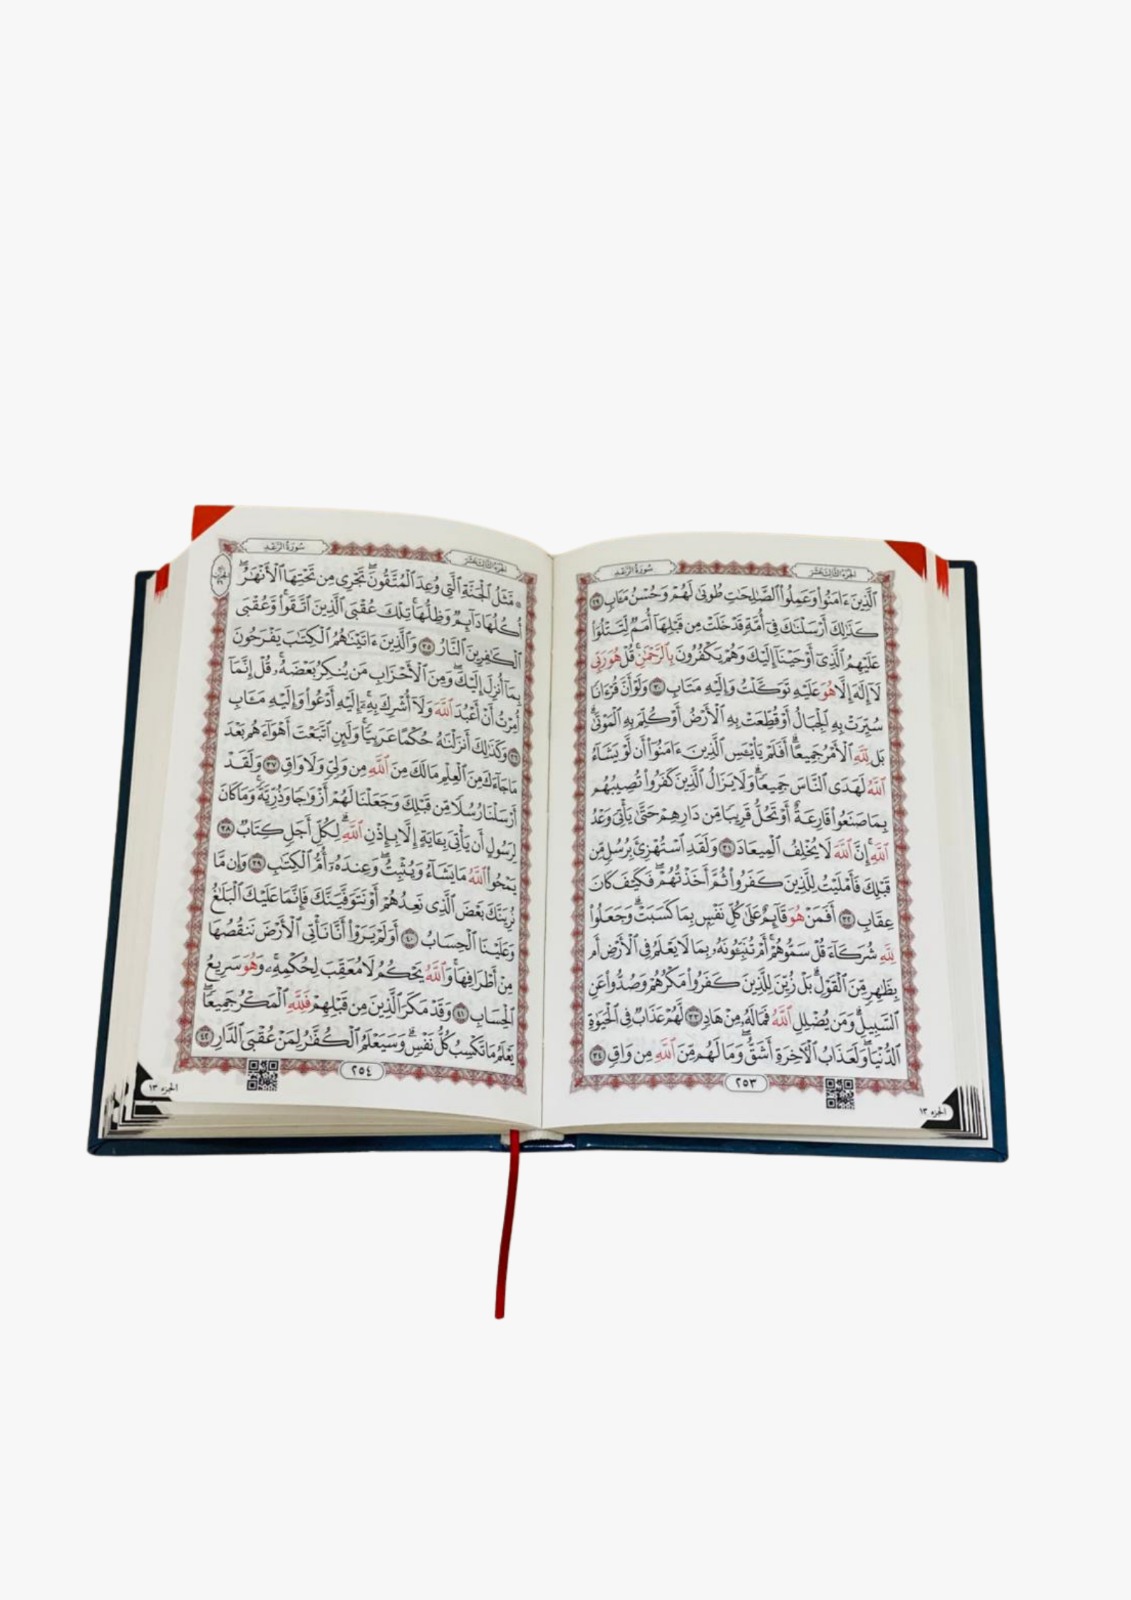 الجزء الثالث عشر
سورة الرعد
الَّذِينَ ءَامَنُوا۟ وَعَمِلُوا۟ الصَّٰلِحَٰتِ طُوبَىٰ لَهُمْ وَحُسْنُ مَـَٔابٍ ٢٩
كَذَٰلِكَ أَرْسَلْنَٰكَ فِىٓ أُمَّةٍ قَدْ خَلَتْ مِن قَبْلِهَآ أُمَمٌ لِّتَتْلُوَا۟
عَلَيْهِمُ ٱلَّذِىٓ أَوْحَيْنَآ إِلَيْكَ وَهُمْ يَكْفُرُونَ بِٱلرَّحْمَٰنِ ۚ قُلْ هُوَ رَبِّى
لَآ إِلَٰهَ إِلَّا هُوَ عَلَيْهِ تَوَكَّلْتُ وَإِلَيْهِ مَتَابِ ٣٠ وَلَوْ أَنَّ قُرْءَانًا
سُيِّرَتْ بِهِ ٱلْجِبَالُ أَوْ قُطِّعَتْ بِهِ ٱلْأَرْضُ أَوْ كُلِّمَ بِهِ ٱلْمَوْتَىٰ ۗ
بَل لِّلَّهِ ٱلْأَمْرُ جَمِيعًا ۗ أَفَلَمْ يَا۟يْـَٔسِ ٱلَّذِينَ ءَامَنُوٓا۟ أَن لَّوْ يَشَآءُ
ٱللَّهُ لَهَدَى ٱلنَّاسَ جَمِيعًا ۗ وَلَا يَزَالُ ٱلَّذِينَ كَفَرُوا۟ تُصِيبُهُم
بِمَا صَنَعُوا۟ قَارِعَةٌ أَوْ تَحُلُّ قَرِيبًا مِّن دَارِهِمْ حَتَّىٰ يَأْتِىَ وَعْدُ
ٱللَّهِ ۚ إِنَّ ٱللَّهَ لَا يُخْلِفُ ٱلْمِيعَادَ ٣١ وَلَقَدِ ٱسْتُهْزِئَ بِرُسُلٍ مِّن
قَبْلِكَ فَأَمْلَيْتُ لِلَّذِينَ كَفَرُوا۟ ثُمَّ أَخَذْتُهُمْ ۖ فَكَيْفَ كَانَ
عِقَابِ ٣٢ أَفَمَنْ هُوَ قَآئِمٌ عَلَىٰ كُلِّ نَفْسٍۭ بِمَا كَسَبَتْ ۗ وَجَعَلُوا۟
لِلَّهِ شُرَكَآءَ قُلْ سَمُّوهُمْ ۚ أَمْ تُنَبِّـُٔونَهُۥ بِمَا لَا يَعْلَمُ فِى ٱلْأَرْضِ أَم
بِظَٰهِرٍ مِّنَ ٱلْقَوْلِ ۗ بَلْ زُيِّنَ لِلَّذِينَ كَفَرُوا۟ مَكْرُهُمْ وَصُدُّوا۟ عَنِ
ٱلسَّبِيلِ ۗ وَمَن يُضْلِلِ ٱللَّهُ فَمَا لَهُۥ مِنْ هَادٍ ٣٣ لَّهُمْ عَذَابٌ فِى ٱلْحَيَوٰةِ
ٱلدُّنْيَا ۖ وَلَعَذَابُ ٱلْءَاخِرَةِ أَشَقُّ ۖ وَمَا لَهُم مِّنَ ٱللَّهِ مِن وَاقٍ ٣٤
٢٥٣
الجزء ١٣
الجزء الثالث عشر
سورة الرعد
۞ مَّثَلُ ٱلْجَنَّةِ ٱلَّتِى وُعِدَ ٱلْمُتَّقُونَ ۖ تَجْرِى مِن تَحْتِهَا ٱلْأَنْهَٰرُ ۖ
أُكُلُهَا دَآئِمٌ وَظِلُّهَا ۚ تِلْكَ عُقْبَى ٱلَّذِينَ ٱتَّقَوا۟ ۖ وَّعُقْبَى
ٱلْكَٰفِرِينَ ٱلنَّارُ ٣٥ وَٱلَّذِينَ ءَاتَيْنَٰهُمُ ٱلْكِتَٰبَ يَفْرَحُونَ
بِمَآ أُنزِلَ إِلَيْكَ ۖ وَمِنَ ٱلْأَحْزَابِ مَن يُنكِرُ بَعْضَهُۥ ۚ قُلْ إِنَّمَآ
أُمِرْتُ أَنْ أَعْبُدَ ٱللَّهَ وَلَآ أُشْرِكَ بِهِۦٓ ۚ إِلَيْهِ أَدْعُوا۟ وَإِلَيْهِ مَـَٔابِ
٣٦ وَكَذَٰلِكَ أَنزَلْنَٰهُ حُكْمًا عَرَبِيًّا ۚ وَلَئِنِ ٱتَّبَعْتَ أَهْوَآءَهُم بَعْدَ
مَا جَآءَكَ مِنَ ٱلْعِلْمِ مَا لَكَ مِنَ ٱللَّهِ مِن وَلِىٍّ وَلَا وَاقٍ ٣٧ وَلَقَدْ
أَرْسَلْنَا رُسُلًا مِّن قَبْلِكَ وَجَعَلْنَا لَهُمْ أَزْوَٰجًا وَذُرِّيَّةً ۚ وَمَا كَانَ
لِرَسُولٍ أَن يَأْتِىَ بِـَٔايَةٍ إِلَّا بِإِذْنِ ٱللَّهِ ۗ لِكُلِّ أَجَلٍ كِتَابٌ ٣٨
يَمْحُوا۟ ٱللَّهُ مَا يَشَآءُ وَيُثْبِتُ ۖ وَعِندَهُۥٓ أُمُّ ٱلْكِتَٰبِ ٣٩ وَإِن مَّا
نُرِيَنَّكَ بَعْضَ ٱلَّذِى نَعِدُهُمْ أَوْ نَتَوَفَّيَنَّكَ فَإِنَّمَا عَلَيْكَ ٱلْبَلَٰغُ
وَعَلَيْنَا ٱلْحِسَابُ ٤٠ أَوَلَمْ يَرَوْا۟ أَنَّا نَأْتِى ٱلْأَرْضَ نَنقُصُهَا
مِنْ أَطْرَافِهَا ۚ وَٱللَّهُ يَحْكُمُ لَا مُعَقِّبَ لِحُكْمِهِۦ ۚ وَهُوَ سَرِيعُ
ٱلْحِسَابِ ٤١ وَقَدْ مَكَرَ ٱلَّذِينَ مِن قَبْلِهِمْ فَلِلَّهِ ٱلْمَكْرُ جَمِيعًا ۖ
يَعْلَمُ مَا تَكْسِبُ كُلُّ نَفْسٍ ۗ وَسَيَعْلَمُ ٱلْكُفَّٰرُ لِمَنْ عُقْبَى ٱلدَّارِ ٤٢
٢٥٤
الجزء ١٣